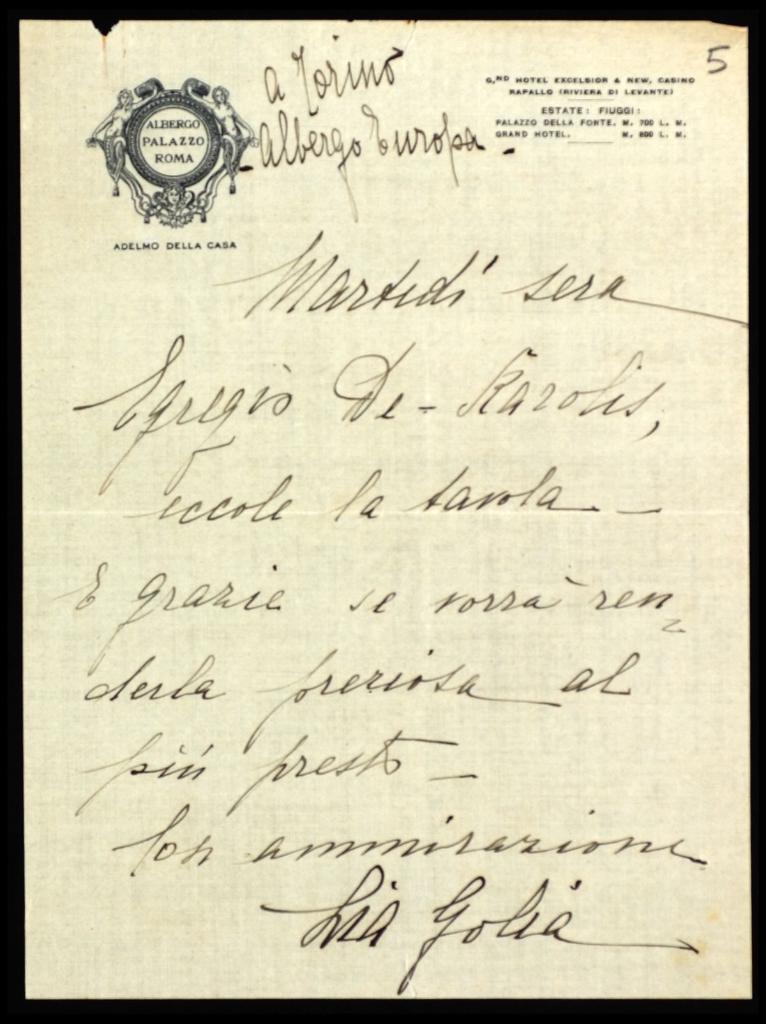 5
a Torino
Albergo Europa -
ALBERGO
PALAZZO
ROMA
ADELMO DELLA CASA
G.ND HOTEL EXCELSIOR & NEW. CASINO
RAPALLO (RIVIERA DI LEVANTE)
ESTATE: FIUGGI:
PALAZZO DELLA FONTE. M. 700 L. M.
GRAND HOTEL. M. 800 L. M.
Martedí sera
Egregio De-Karolis,
eccole la tavola -
E grazie se vorrà ren=
derla preziosa al
piú presto -
Con ammirazione
Lia Golia